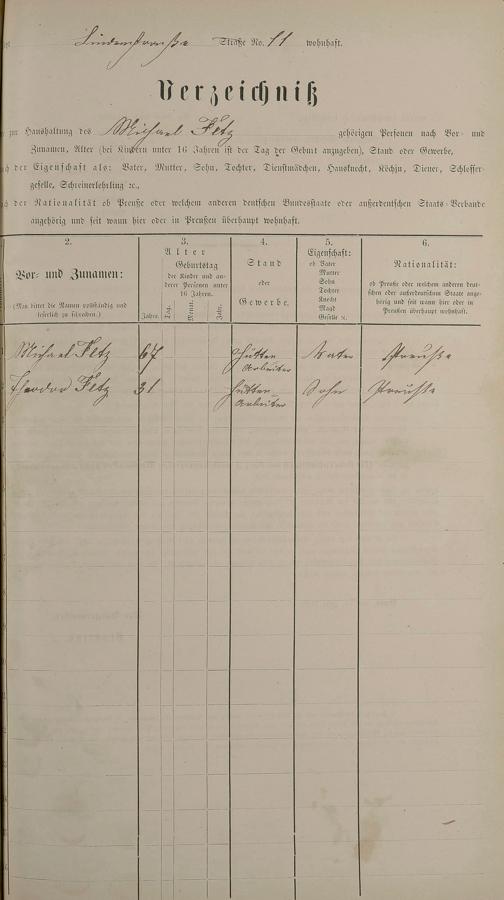 Lindenstraße Straße No. 11 wohnhaft.
Verzeichniß
zur Haushaltung des Michael Fetz gehörigen Personen nach Vor- und
Zunamen, Alter (bei Kindern unter 16 Jahren ist der Tag der Geburt anzugeben), Stand oder Gewerbe,
der Eigenschaft als: Vater, Mutter, Sohn, Tochter, Dienstmädchen, Hausknecht, Köchin, Diener, Schlosser-
geselle, Schreinerlehrling ꝛc.,
der Nationalität ob Preuße oder welchem anderen deutschen Bundesstaate oder außerdeutschen Staats-Verbande
angehörig und seit wann hier oder in Preußen überhaupt wohnhaft.
2.
Vor- und Zunamen:
(Man bittet die Namen vollständig und
leserlich zu schreiben.)
3.
Alter
Geburtstag
der Kinder und an-
derer Personen unter
16 Jahren.
Jahre. Tag. Monat. Jahr.
4.
Stand
oder
Gewerbe.
5.
Eigenschaft:
ob Vater
Mutter
Sohn
Tochter
Knecht
Magd
Geselle ꝛc.
6.
Nationalität:
ob Preuße oder welchem anderen deut-
schen oder außerdeutschen Staate ange-
hörig und seit wann hier oder in
Preußen überhaupt wohnhaft.
Michael Fetz 67 Hütten Vater Preuße
Arbeiter
Theodor Fetz 31 Hütten- Sohn Preuße
Arbeiter